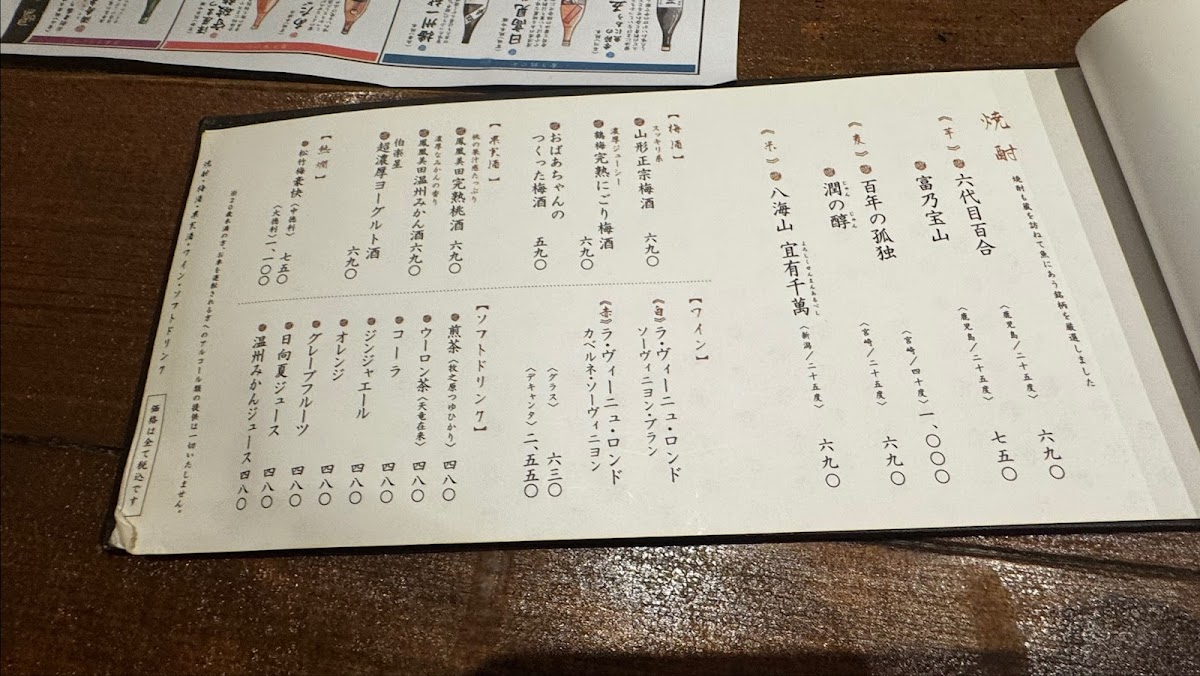 焼酎
焼酎も蔵を訪ねて魚にあう銘柄を厳選しました
《芋》
六代目百合 〈鹿児島/二十五度〉 六九〇
富乃宝山 〈鹿児島/二十五度〉 七五〇
《麦》
百年の孤独 〈宮崎/四十度〉 一、〇〇〇
潤の醇 〈宮崎/二十五度〉 六九〇
じゅん じゅん
《米》
八海山 宜有千萬 〈新潟/二十五度〉 六九〇
よろしくせんまんあるべし
【梅酒】
スッキリ系
山形正宗梅酒 六九〇
濃厚ジューシー
鶴梅完熟にごり梅酒 六九〇
おばあちゃんの
つくった梅酒 五九〇
【果実酒】
桃の果汁感たっぷり
鳳凰美田完熟桃酒 六九〇
濃厚なみかんの香り
鳳凰美田温州みかん酒 六九〇
伯楽星
超濃厚ヨーグルト酒 六九〇
【熱燗】
松竹梅豪快 〈中徳利〉 七五〇
〈大徳利〉 一、一〇〇
【ワイン】
《白》ラ・ヴィーニュ・ロンド
ソーヴィニヨン・ブラン
《赤》ラ・ヴィーニュ・ロンド
カベルネ・ソーヴィニヨン
〈グラス〉 六三〇
〈デキャンタ〉 二、五五〇
【ソフトドリンク】
煎茶〈牧之原つゆひかり〉 四八〇
ウーロン茶〈天竜在来〉 四八〇
コーラ 四八〇
ジンジャエール 四八〇
オレンジ 四八〇
グレープフルーツ 四八〇
日向夏ジュース 四八〇
温州みかんジュース 四八〇
※20歳未満の方、お車を運転される方へのアルコール類の提供は一切いたしません。
焼酎・梅酒・果実酒・ワイン・ソフトドリンク
価格は全て税込です
日高見